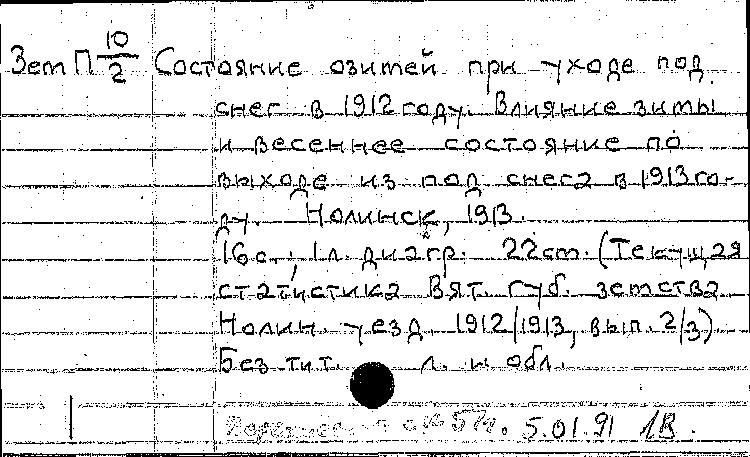 Зем П 10/2 Состояние озитей при уходе под
снег в 1912 году. Влияние зимы
и весеннее состояние по
выходе из под снега в 1913 го-
ду. Нолинск, 1913.
16 с., 1 л. диагр. 22 см. (Текущая
статистика Вят. губ. земства
Нолин. уезд. 1912/1913, вып. 2/3).
Без тит. л. и обл.
5.01.91 1В.